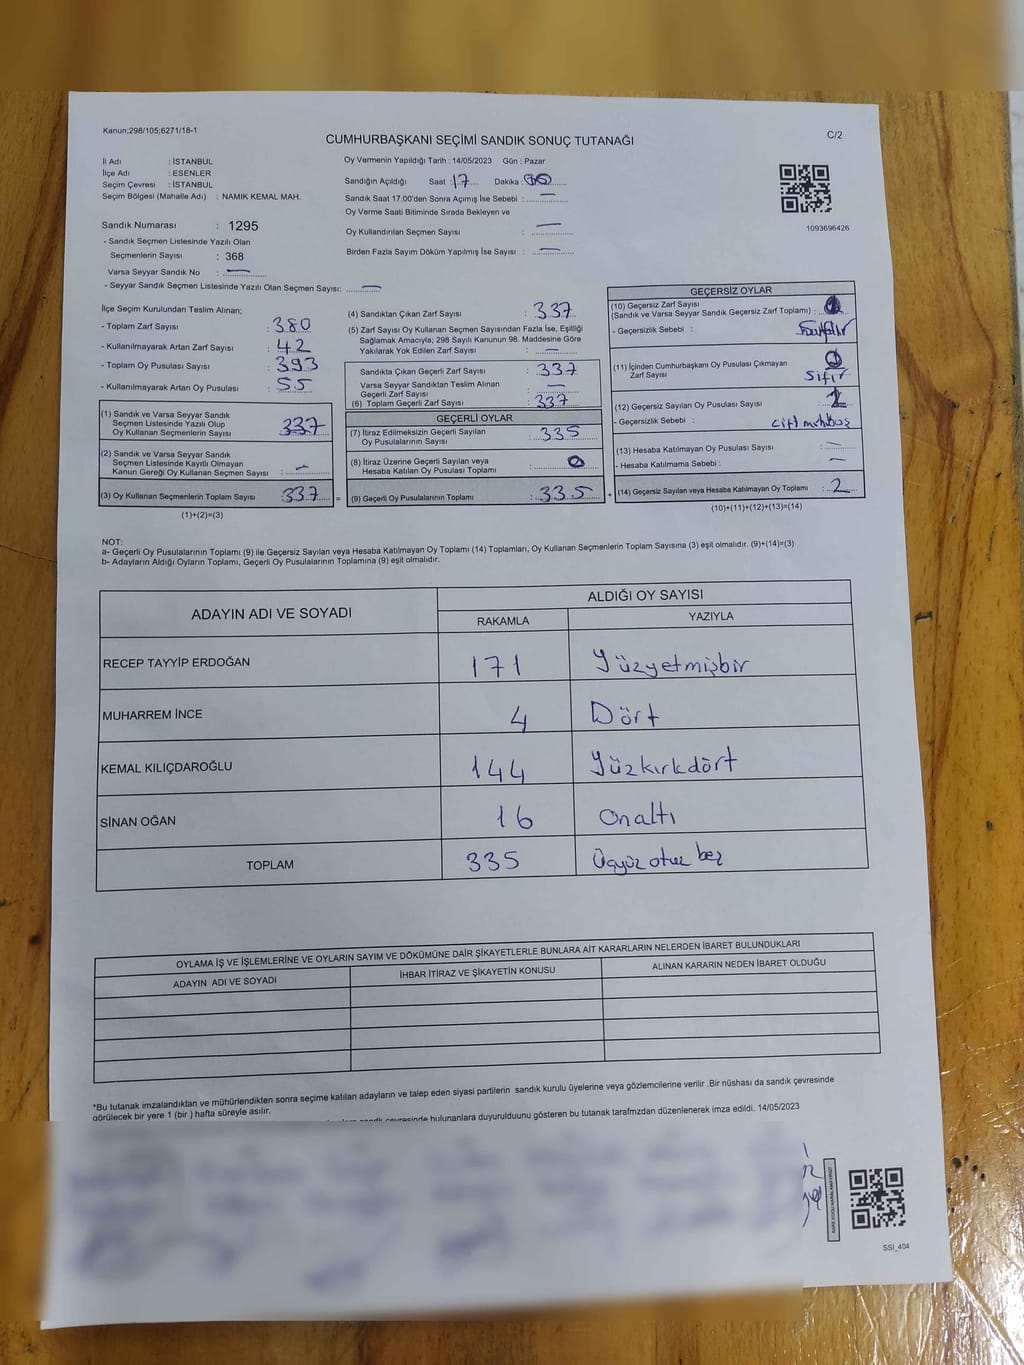 Kanun;298/105;6271/18-1
C/2
CUMHURBAŞKANI SEÇİMİ SANDIK SONUÇ TUTANAĞI
İl Adı : İSTANBUL
İlçe Adı : ESENLER
Seçim Çevresi : İSTANBUL
Seçim Bölgesi (Mahalle Adı) : NAMIK KEMAL MAH.
Sandık Numarası : 1295
- Sandık Seçmen Listesinde Yazılı Olan
Seçmenlerin Sayısı : 368
Varsa Seyyar Sandık No : —
- Seyyar Sandık Seçmen Listesinde Yazılı Olan Seçmen Sayısı: —
Oy Vermenin Yapıldığı Tarih : 14/05/2023 Gün : Pazar
Sandığın Açıldığı Saat : 17 Dakika :
Sandık Saat 17:00'den Sonra Açımış İse Sebebi : —
Oy Verme Saati Bitiminde Sırada Bekleyen ve
Oy Kullandırılan Seçmen Sayısı : —
Birden Fazla Sayım Döküm Yapılmış İse Sayısı : —
1093696426
İlçe Seçim Kurulundan Teslim Alınan;
- Toplam Zarf Sayısı : 380
- Kullanılmayarak Artan Zarf Sayısı : 42
- Toplam Oy Pusulası Sayısı : 393
- Kullanılmayarak Artan Oy Pusulası : 55
(1) Sandık ve Varsa Seyyar Sandık
Seçmen Listesinde Yazılı Olup
Oy Kullanan Seçmenlerin Sayısı : 337
(2) Sandık ve Varsa Seyyar Sandık
Seçmen Listesinde Kayıtlı Olmayan
Kanun Gereği Oy Kullanan Seçmen Sayısı : —
(3) Oy Kullanan Seçmenlerin Toplam Sayısı : 337 =
(1)+(2)=(3)
(4) Sandıktan Çıkan Zarf Sayısı : 337
(5) Zarf Sayısı Oy Kullanan Seçmen Sayısından Fazla İse, Eşitliği
Sağlamak Amacıyla; 298 Sayılı Kanunun 98. Maddesine Göre
Yakılarak Yok Edilen Zarf Sayısı : —
Sandıkta Çıkan Geçerli Zarf Sayısı : 337
Varsa Seyyar Sandıktan Teslim Alınan
Geçerli Zarf Sayısı : —
(6) Toplam Geçerli Zarf Sayısı : 337
GEÇERLİ OYLAR
(7) İtiraz Edilmeksizin Geçerli Sayılan
Oy Pusulalarının Sayısı : 335
(8) İtiraz Üzerine Geçerli Sayılan veya
Hesaba Katılan Oy Pusulası Toplamı : 0
(9) Geçerli Oy Pusulalarının Toplamı : 335 +
GEÇERSİZ OYLAR
(10) Geçersiz Zarf Sayısı
(Sandık ve Varsa Seyyar Sandık Geçersiz Zarf Toplamı) :
- Geçersizlik Sebebi :
(11) İçinden Cumhurbaşkanı Oy Pusulası Çıkmayan
Zarf Sayısı : 0
Sıfır
(12) Geçersiz Sayılan Oy Pusulası Sayısı : 2
- Geçersizlik Sebebi : çift
(13) Hesaba Katılmayan Oy Pusulası Sayısı : —
- Hesaba Katılmama Sebebi : —
(14) Geçersiz Sayılan veya Hesaba Katılmayan Oy Toplamı : 2
(10)+(11)+(12)+(13)=(14)
NOT:
a- Geçerli Oy Pusulalarının Toplamı (9) ile Geçersiz Sayılan veya Hesaba Katılmayan Oy Toplamı (14) Toplamları, Oy Kullanan Seçmenlerin Toplam Sayısına (3) eşit olmalıdır. (9)+(14)=(3)
b- Adayların Aldığı Oyların Toplamı, Geçerli Oy Pusulalarının Toplamına (9) eşit olmalıdır.
ADAYIN ADI VE SOYADI
ALDIĞI OY SAYISI
RAKAMLA YAZIYLA
RECEP TAYYİP ERDOĞAN 171 Yüzyetmişbir
MUHARREM İNCE 4 Dört
KEMAL KILIÇDAROĞLU 144 Yüzkırkdört
SİNAN OĞAN 16 Onaltı
TOPLAM 335 Üçyüz otuz beş
OYLAMA İŞ VE İŞLEMLERİNE VE OYLARIN SAYIM VE DÖKÜMÜNE DAİR ŞİKAYETLERLE BUNLARA AİT KARARLARIN NELERDEN İBARET BULUNDUKLARI
ADAYIN ADI VE SOYADI İHBAR İTİRAZ VE ŞİKAYETİN KONUSU ALINAN KARARIN NEDEN İBARET OLDUĞU
*Bu tutanak imzalandıktan ve mühürlendikten sonra seçime katılan adayların ve talep eden siyasi partilerin sandık kurulu üyelerine veya gözlemcilerine verilir .Bir nüshası da sandık çevresinde
görülecek bir yere 1 (bir ) hafta süreyle asılır.
sandık çevresinde bulunanlara duyurulduunu gösteren bu tutanak tarafmzdan düzenlenerek imza edildi. 14/05/2023
SSI_404